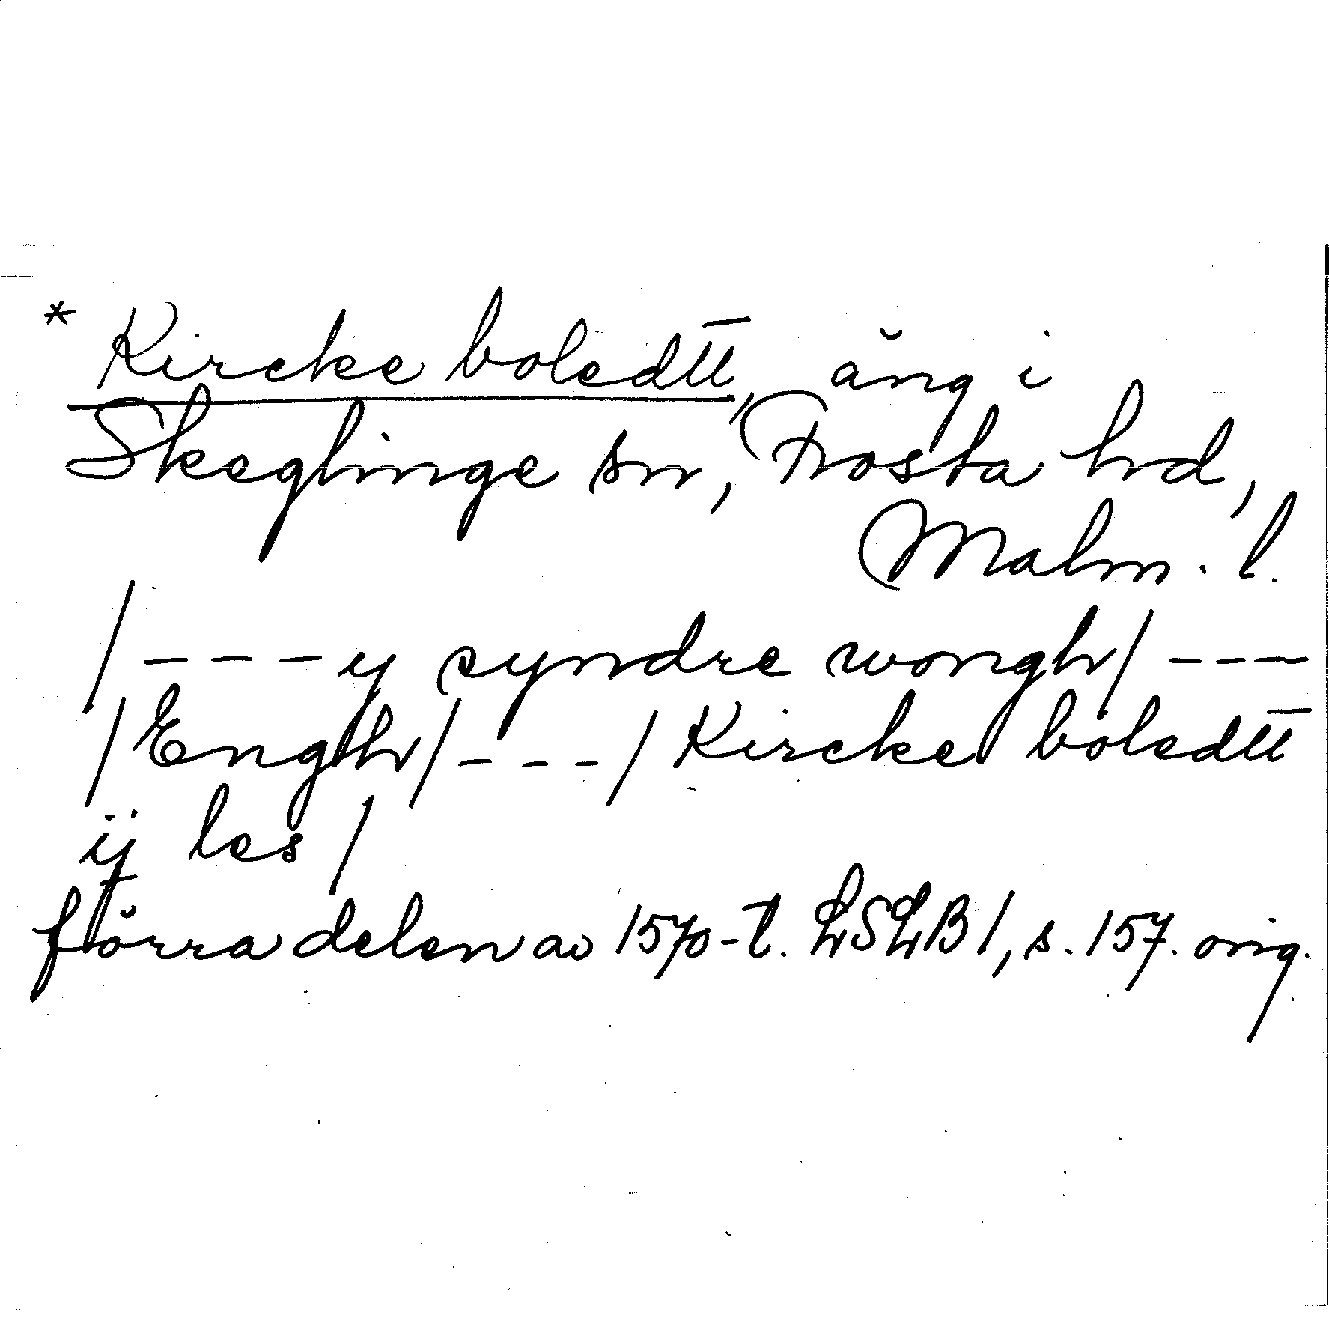 * Kircke boledtt, äng i
Skeglinge sn, Frosta hd,
Malm. l.
/---y syndre wongh/---
/Engh/---/Kircke boledtt
ij les/
förra delen av 1570-t. LSLB 1, s. 157. orig.